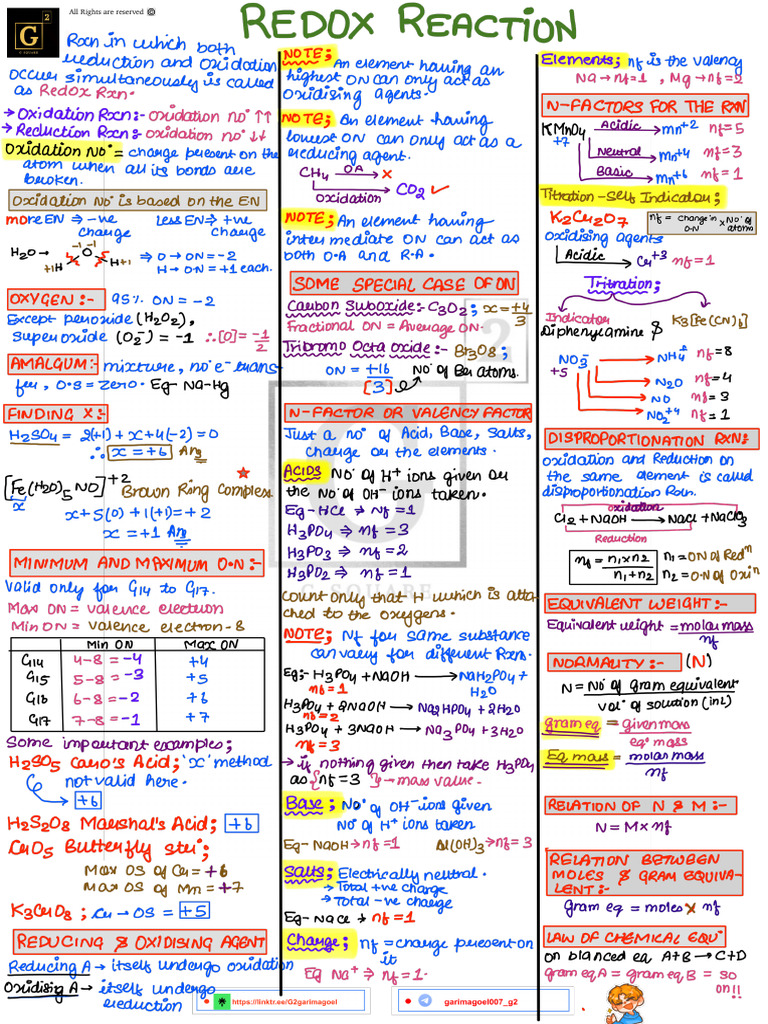 All Rights are reserved ©
REDOX REACTION
G 2
G SQUARE
Rxn in which both
reduction and Oxidation
occur simultaneously is called
as Redox Rxn.
→ Oxidation Rxn:- oxidation no. ↑↑
→ Reduction Rxn: oxidation no. ↓↓
Oxidation No. = charge present on the
atom when all its bonds are
broken.
Oxidation No. is based on the EN
more EN ⇒ -ve charge
Less EN ⇒ +ve charge
H2O →
-1 -1
O
+1H H+1
⇒ O → ON = -2
H → O.N = +1 each.
OXYGEN :- 95% ON = -2
Except peroxide (H2O2),
Superoxide (O2⁻) = -1 ∴ [O] = -1/2
AMALGUM:- mixture, no e⁻ trans
fer, O.S = zero. Eg- NA-Hg
FINDING X:-
H2SO4 = 2(+1) + x + 4(-2) = 0
∴ x = +6 Ans
[Fe(H2O)5NO]+2 Brown Ring Complex
x
x + 5(0) + 1(+1) = +2
x = +1 Ans
MINIMUM AND MAXIMUM O.N:-
Valid only for G14 to G17.
Max ON = valence electron
Min ON = valence electron - 8
Min ON Max ON
G14 4-8 = -4 +4
G15 5-8 = -3 +5
G16 6-8 = -2 +6
G17 7-8 = -1 +7
Some important examples;
H2SO5 Caro's Acid; 'x' method
not valid here.
+6
H2S2O8 Marshal's Acid; +6
CrO5 Butterfly str;
Max OS of Cr = +6
Max OS of Mn = +7
K3CrO8 ; Cr → OS = +5
REDUCING & OXIDISING AGENT
Reducing A → itself undergo oxidation
Oxidising A → itself undergo
reduction
NOTE; An element having an
highest ON can only act as
oxidising agents.
NOTE; An element having
lowest ON can only act as a
reducing agent.
CH4 OA → ×
oxidation CO2 ✓
NOTE; An element having
intermediate ON can act as
both O.A and R.A.
SOME SPECIAL CASE OF ON
Carbon Suboxide:- C3O2; x = +4/3
Fractional ON = Average ON
Tribromo Octa Oxide:- Br3O8;
ON = +16/[3] No. of Br atoms.
N-FACTOR OR VALENCY FACTOR
Just a no. of Acid, Base, Salts,
Charge or the elements.
ACIDS No. of H+ ions given or
the No. of OH⁻ ions taken.
Eg - HCl ⇒ Nf = 1
H3PO4 ⇒ nf = 3
H3PO3 ⇒ nf = 2
H3PO2 ⇒ nf = 1
count only that H which is atta
ched to the oxygens.
NOTE; Nf for same substance
can vary for different Rxn.
Eg:- H3PO4 + NaOH → NaH2PO4 + H2O
nf = 1
H3PO4 + 2NaOH → Na2HPO4 + 2H2O
nf = 2
H3PO4 + 3NaOH → Na3PO4 + 3H2O
nf = 3
→ if nothing given then take H3PO4
as {nf = 3 } → mass value.
Base; No. of OH⁻ ions given
No. of H+ ions taken
Eg - NaOH → nf = 1 Al(OH)3 → nf = 3
Salts; Electrically neutral.
→ Total +ve charge
→ Total -ve charge
Eg- NaCl → nf = 1
Charge; nf = charge present on
it
Eg Na+ ⇒ nf = 1.
https://linktr.ee/G2garimagoel
garimagoel007_g2
Elements; nf is the valency
Na → nf = 1 , Mg → nf = 2
N-FACTORS FOR THE RXN
KMnO4 Acidic → Mn+2 nf = 5
+7
Neutral → Mn+4 nf = 3
Basic → Mn+6 nf = 1
Titration - Self Indicator;
K2Cr2O7 nf = change in O.N × No. of atoms
Oxidising agents
Acidic → Cr+3 nf = 1
Titration;
Indicator
Diphenylamine & K3[Fe(CN)6]
NO3⁻ → NH4+ nf = 8
+5
N2O nf = 4
NO nf = 3
NO2+4 nf = 1
DISPROPORTIONATION RXN:
oxidation and Reduction on
the same element is called
disproportionation Rxn.
oxidation
Cl2 + NaOH → NaCl + NaClO3
Reduction
nf = n1×n2 / n1+n2
n1 = ON of Redn
n2 = O.N of Oxin
EQUIVALENT WEIGHT:-
Equivalent weight = molar mass / nf
NORMALITY:- (N)
N = No. of gram equivalent / vol. of solution (in L)
gram eq = given mass / eq. mass
Eq mass = molar mass / nf
RELATION OF N & M:-
N = M × nf
RELATION BETWEEN
MOLES & GRAM EQUIVA-
LENT:-
Gram eq = moles × nf
LAW OF CHEMICAL EQU.
on blanced eq A+B → C+D
gram eq A = gram eq B = so
on!!